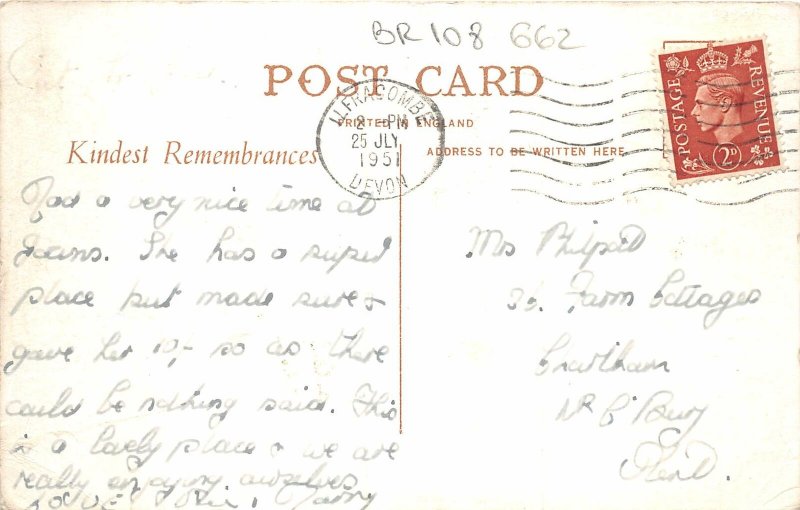 BR 108 662
POST CARD
PRINTED IN ENGLAND
Kindest Remembrances
ADDRESS TO BE WRITTEN HERE
ILFRACOMBE
2 - PM
25 JLY
1951
DEVON
POSTAGE REVENUE
2D
Had a very nice time at
Jeans. She has a
place but made sure &
gave her 10/- so as there
could be nothing said. This
is a lovely place & we are
really enjoying ourselves
Love
Mrs
36. Farm Cottages
Chartham
Nr C'Bury
Kent.